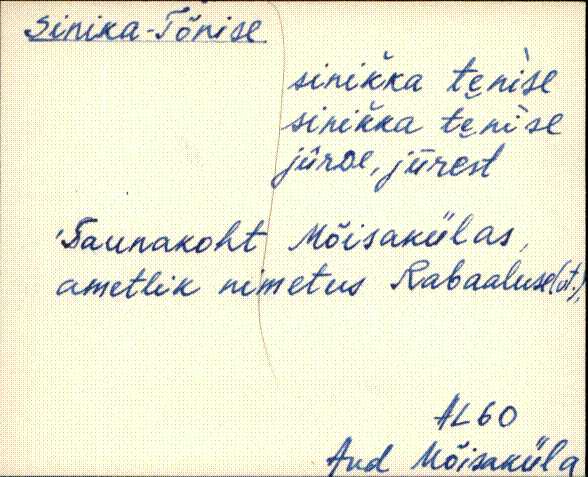 Sinika-Tõnise
sinikka tẹnìse
sinikka tẹnìse
jûrde, jûrest
Saunakoht Mõisakülas,
ametlik nimetus Rabaaluse (vt.),
AL 60
Aud Mõisaküla